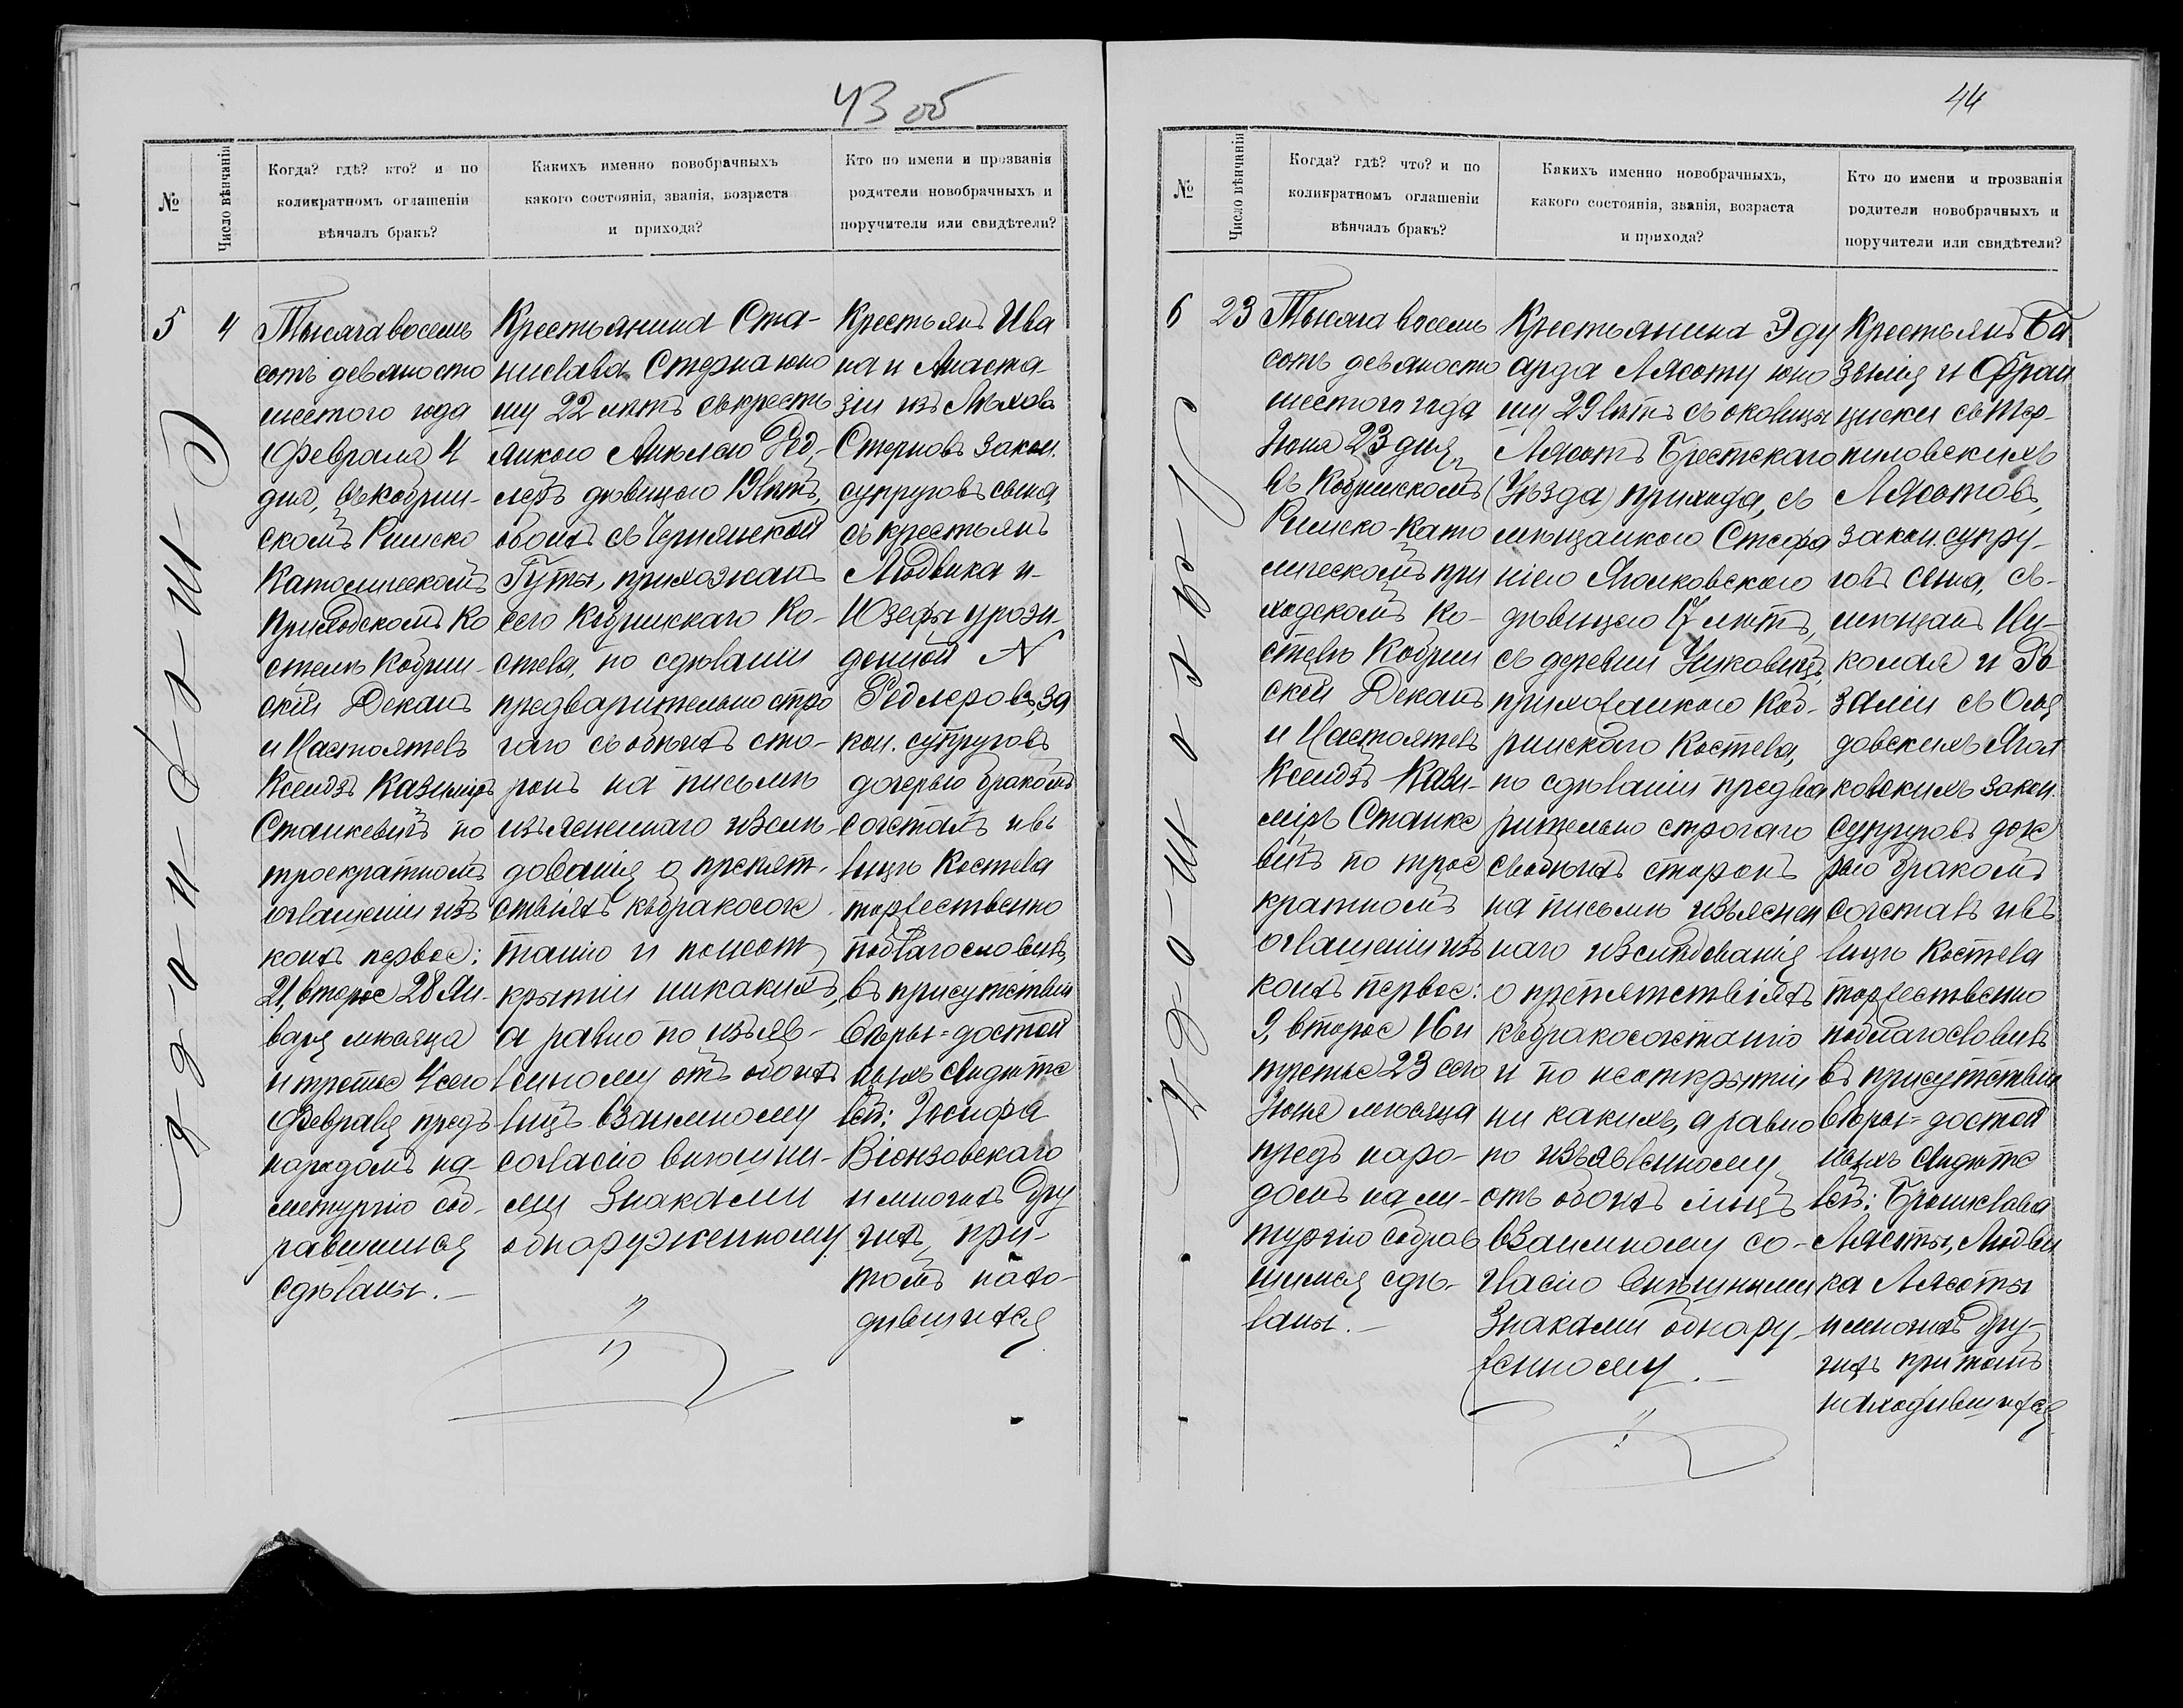 43 об
№
Число вѣнчанія
Когда? гдѣ? кто? и по
коликратномъ оглашеніи
вѣнчалъ бракъ?
Какихъ именно новобрачныхъ
какого состоянія, званія, возраста
и прихода?
Кто по имени и прозванія
родители новобрачныхъ и
поручители или свидѣтели?
5
4
Тысяча восемь
сотъ девяносто
шестого года
Февраля 4
дня, въ Кобрин-
скомъ Римско
Католическомъ
Приходскомъ Ко
стелѣ Кобрин-
скій Деканъ
и Настоятель
Ксендзъ Казиміръ
Станкевичъ по
троекратномъ
оглашеніи изъ
коихъ первое:
21, второе 28 Ян-
варя мѣсяца
и третье 4 сего
Февраля предъ
народомъ на
литургію соб-
равшимся
сдѣланы.-
Крестьянина Ста-
нислава Стерна юно
шу 22 лѣтъ съ кресть
янкою Анѣлею Ред-
леръ дѣвицею 19 лѣтъ,
обоихъ съ Чернянской
Гуты, прихожанъ
сего Кобринскаго Ко-
стела, по сдѣланіи
предварительно стро
гаго съ обѣихъ сто-
ронъ на письмѣ
изъясненнаго изслѣ-
дованія о препят-
ствіяхъ къ бракосоче-
танію и по неот
крытіи никакихъ,
а равно по изъяв-
ленному отъ обоихъ
лицъ взаимному
согласію внѣшни-
ми знаками
обнаруженному
Крестьянъ Ива
на и Анаста-
зіи изъ Лѣховъ
Стерновъ закон.
супруговъ сына
съ крестьянъ
Людвика и
Юзефы урожи-
денной N
Редлеровъ, за
кон. супруговъ
дочерью бракомъ
сочеталъ и въ
лицѣ Костела
торжественно
поблагословилъ
въ присутствіи
вѣры=достой
ныхъ свидѣте
лей: Іосифа
Віонзовскаго
и многихъ дру
гихъ, при-
томъ нахо-
дившихся
44
№
Число вѣнчанія
Когда? гдѣ? что? и по
коликратномъ оглашеніи
вѣнчалъ бракъ?
Какихъ именно новобрачныхъ,
какого состоянія, званія, возраста
и прихода?
Кто по имени и прозванія
родители новобрачныхъ и
поручители или свидѣтели?
6
23
Тысяча восемь
сотъ девяносто
шестого года
Іюня 23 дня,
въ Кобринскомъ
Римско-Като
лическомъ при
ходскомъ Ко-
стелѣ Кобрин
скій Деканъ
и Настоятель
Ксендзъ Кази-
міръ Станке
вичъ по трое
кратномъ
оглашеніи изъ
коихъ первое:
9, второе 16 и
третье 23 сего
Іюня мѣсяца
предъ наро-
домъ на ли-
тургію собрав
шимся сдѣ-
ланы.-
Крестьянина Эду
арда Лясоту юно
шу 29 лѣтъ съ околицы
Лясотъ Брестскаго
(Уѣзда) прихода, съ
мѣщанкою Стефа
ніею Ягелковского
дѣвицею 17 лѣтъ,
съ деревни
прихожанкою Коб-
ринскаго Костела,
по сдѣланіи предва
рительно строгаго
съ обѣихъ сторонъ
на письмѣ изъяснен
наго изслѣдованія
о препятствіяхъ
къ бракосочетанію
и по неоткрытіи
ни какихъ, а равно
по изъявленному
отъ обоихъ лицъ
взаимному со-
гласію внѣшними
знаками обнару-
женному.-
Крестьянъ Ба
зылія и Фран
циски съ Тер-
пиловскихъ
Лясотовъ,
закон. супру-
говъ сына, съ
мѣщанъ Ни-
колая и Ро
заліи съ
Ягел
ковскихъ закон.
супруговъ доче
рью бракомъ
сочеталъ и въ
лицѣ Костела
торжественно
поблагословилъ
въ присутствіи
вѣры=достой
ныхъ свидѣте
лей: Бронислава
Лясоты, Людви
ка Лясоты
и многихъ дру-
гихъ при томъ
находившихся